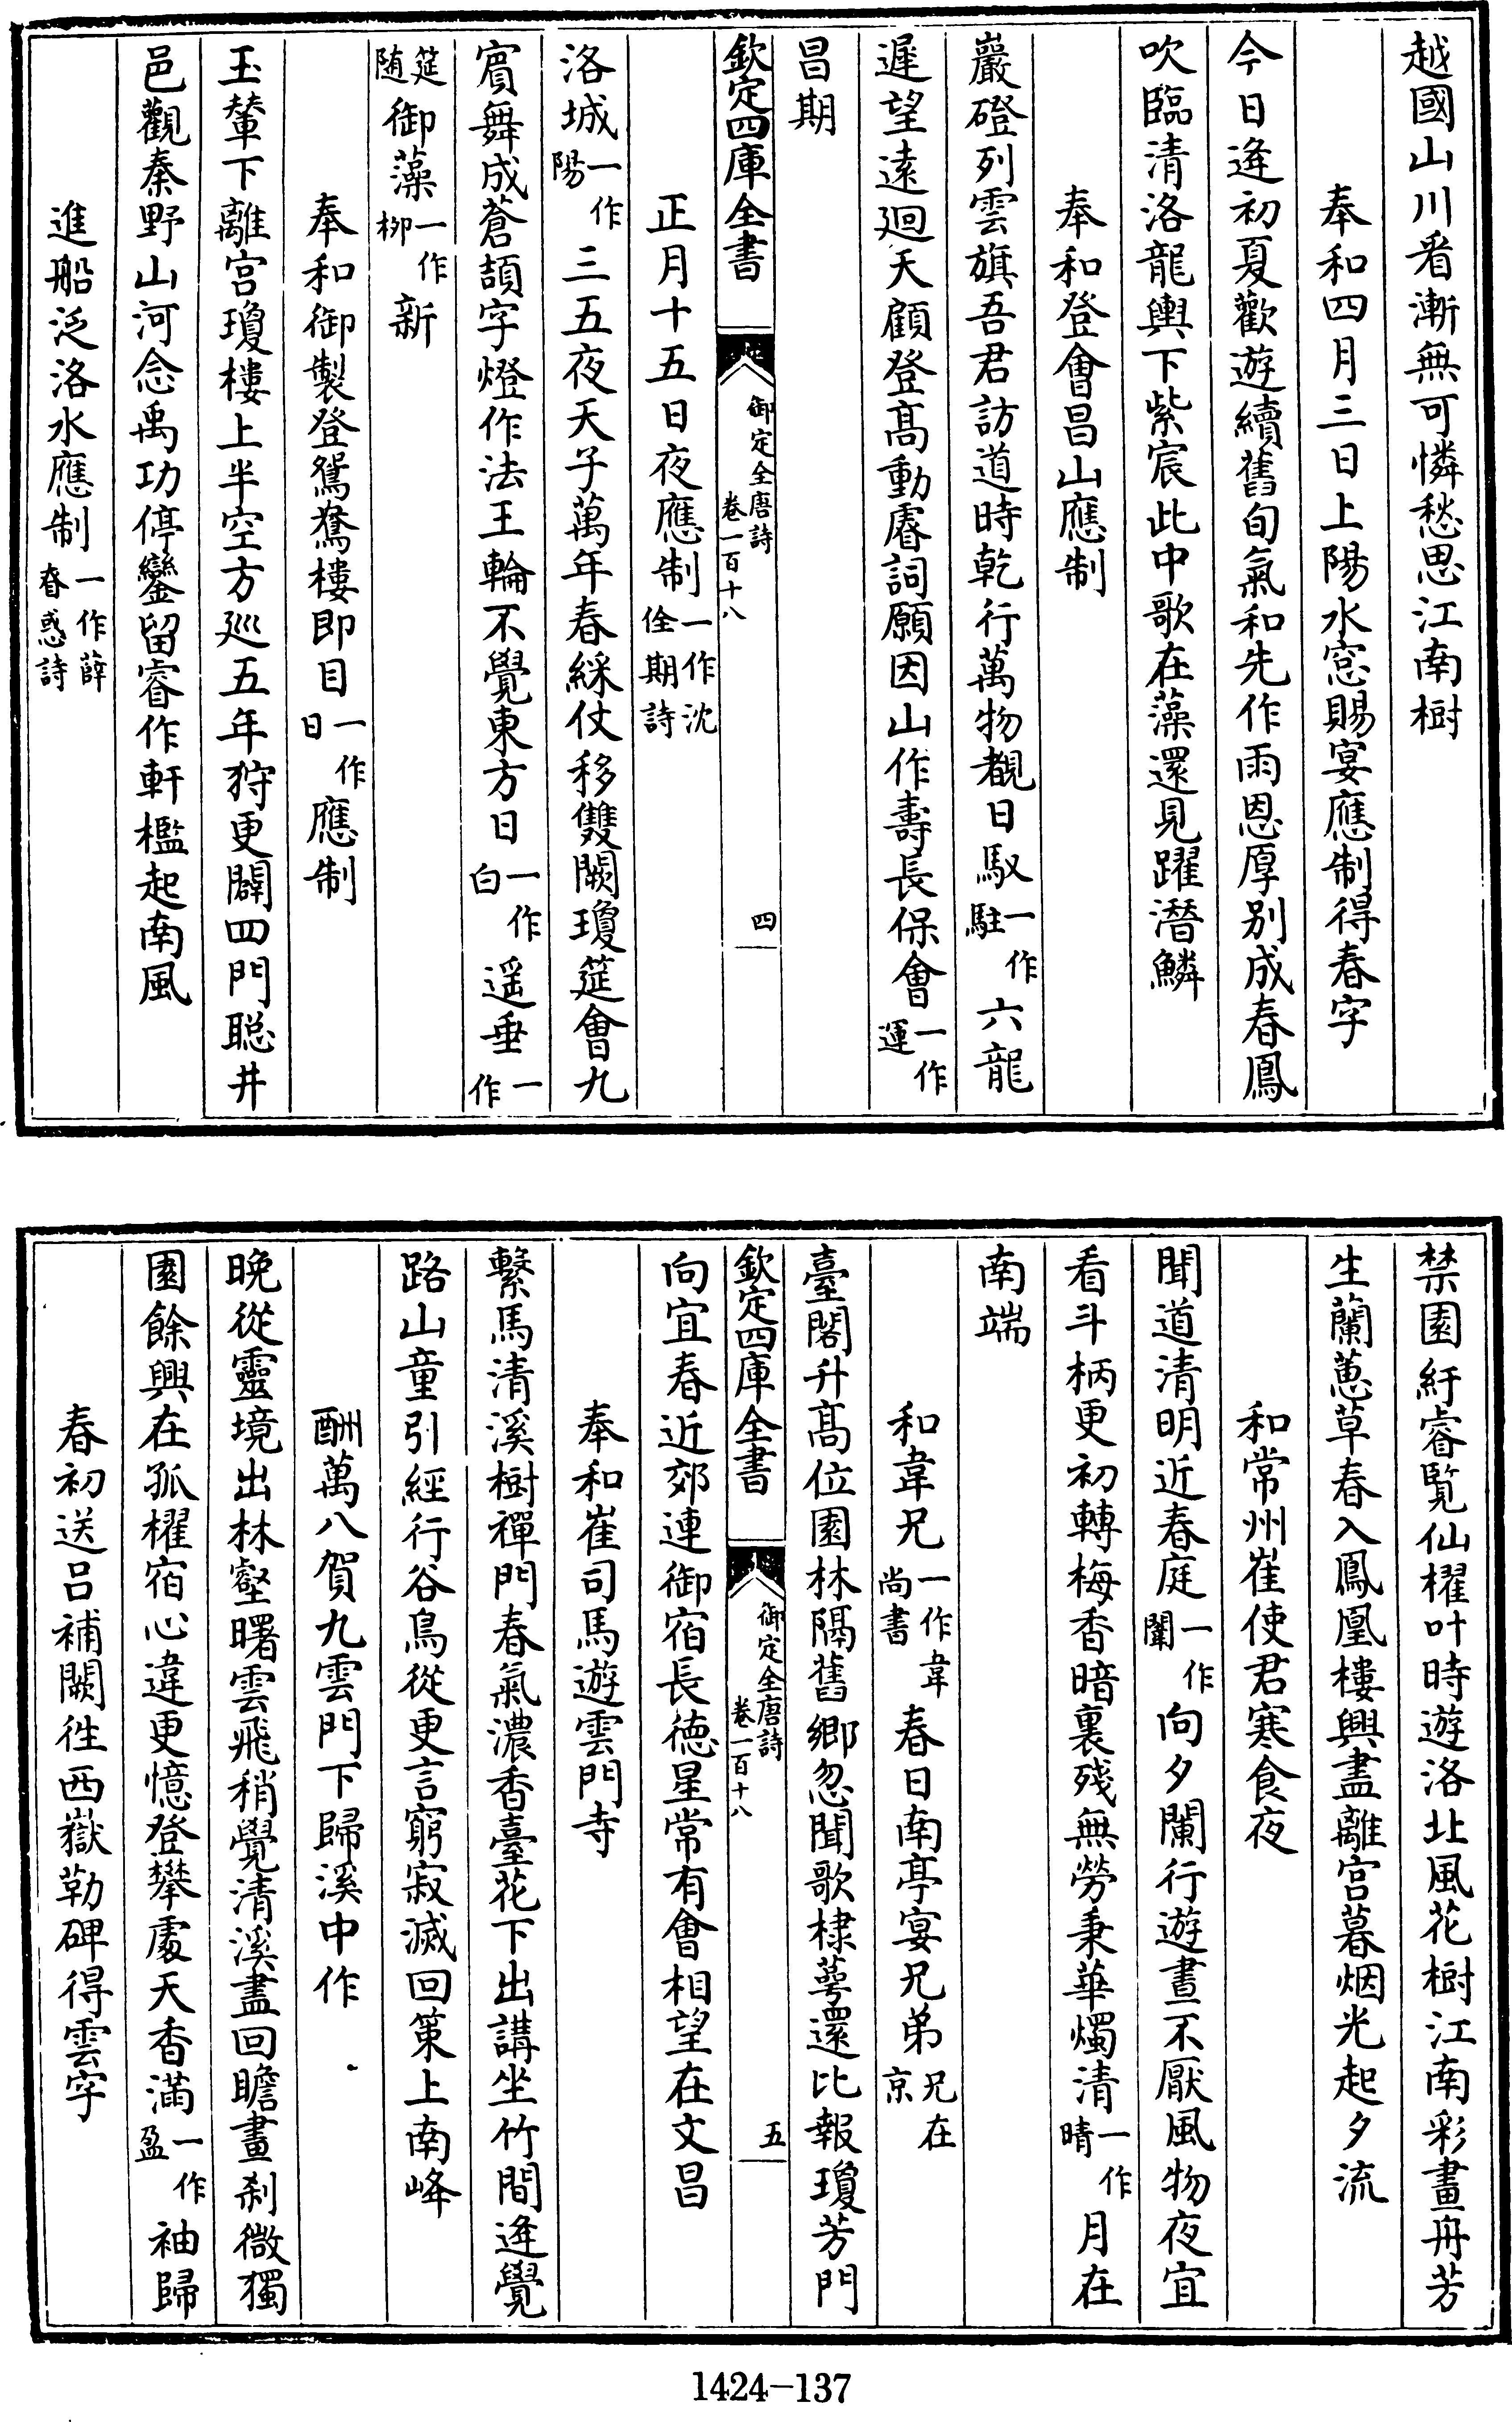 越國山川看漸無可憐愁思江南樹
奉和四月三日上陽水窓賜宴應制得春字
今日逢初夏歡遊續舊旬氣和先作雨恩厚别成春鳳
吹臨清洛龍輿下紫宸此中歌在藻還見躍潛鱗
奉和登會昌山應制
巖磴列雲旗吾君訪道時乾行萬物覩日馭一作駐六龍
遲望遠迴天顧登髙動睿詞願因山作壽長保會一作運
昌期
欽定四庫全書 御定全唐詩卷一百十八 四
正月十五日夜應制一作沈佺期詩
洛城一作陽三五夜天子萬年春綵仗移雙闕瓊筵會九
賔舞成蒼頡字燈作法王輪不覺東方日一作白遥垂一作
筵隨御藻一作柳新
奉和御製登鴛鴦樓即目一作日應制
玉輦下離宫瓊樓上半空方巡五年狩更闢四門聪井
邑觀秦野山河念禹功停鑾留睿作軒檻起南風
進船泛洛水應制一作薛眘惑詩
禁園紆睿覧仙櫂叶時遊洛北風花樹江南彩畫舟芳
生蘭蕙草春入鳳凰樓興盡離宫暮烟光起夕流
和常州崔使君寒食夜
聞道清明近春庭一作闈向夕闌行遊晝不厭風物夜宜
看斗柄更初轉梅香暗裏殘無勞秉華燭清一作晴月在
南端
和韋兄一作韋尚書春日南亭宴兄弟兄在京
臺閣升髙位園林隔舊鄉忽聞歌棣萼還比報瓊芳門
欽定四庫全書 御定全唐詩卷一百十八 五
向宜春近郊連御宿長德星常有會相望在文昌
奉和崔司馬遊雲門寺
繫馬清溪樹禪門春氣濃香臺花下出講坐竹間逢覺
路山童引經行谷鳥從更言窮寂滅回策上南峰
酬萬八賀九雲門下歸溪中作
晚從靈境出林壑曙雲飛稍覺清溪盡回瞻畫刹微獨
園餘興在孤櫂宿心違更憶登攀處天香滿一作盈袖歸
春初送吕補闕徃西嶽勒碑得雲字
1424-137